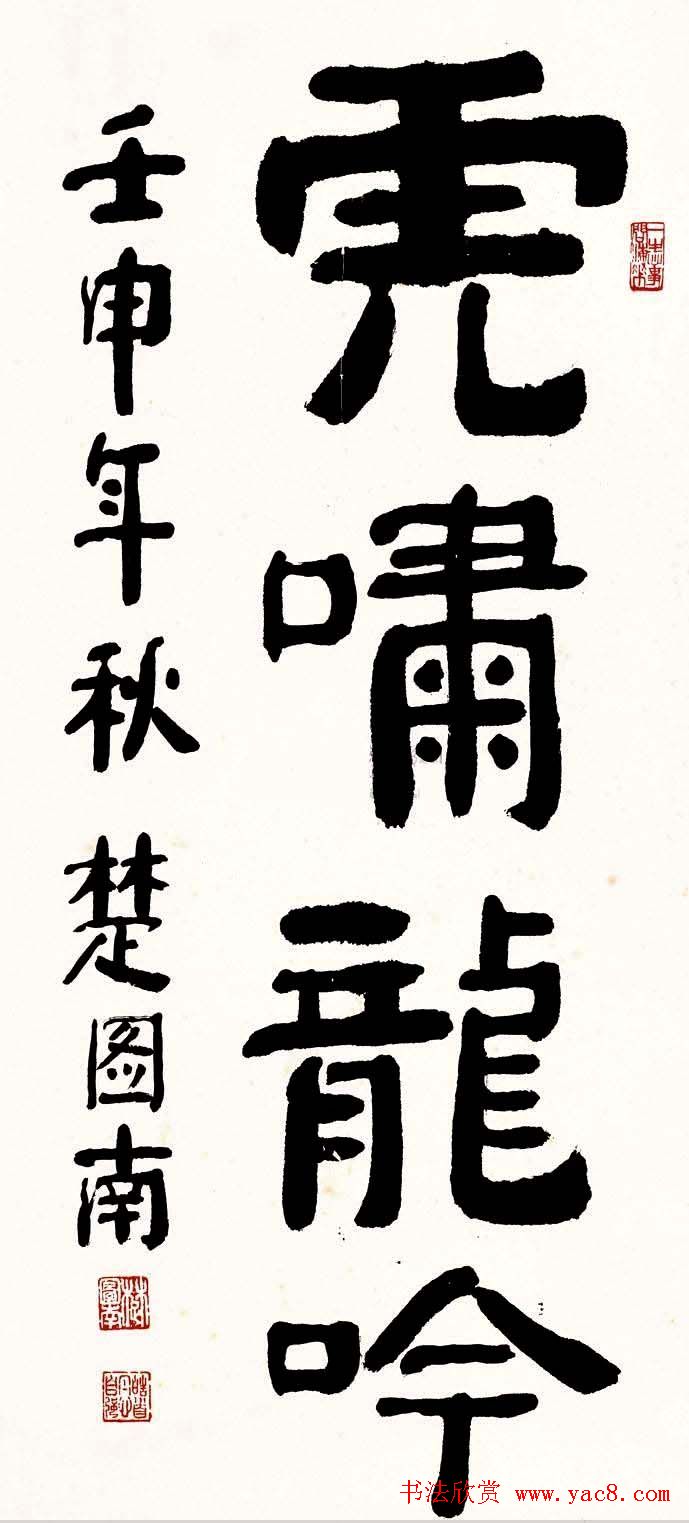 虎嘯龍吟
壬申年秋 楚图南
书法欣赏 www.yac8.com